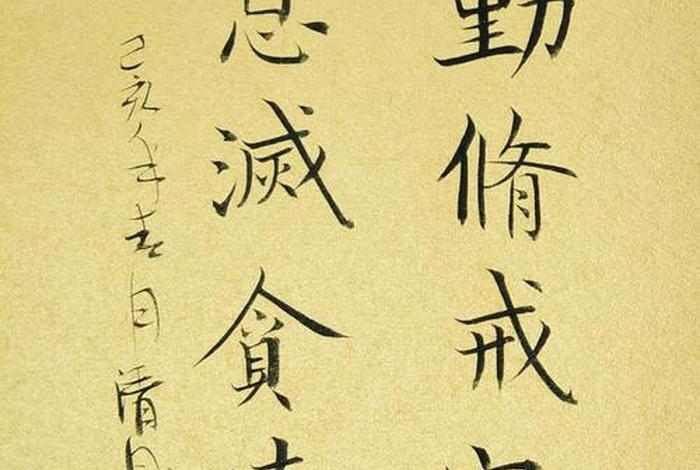 勤脩戒
息滅貪
己亥年春月清